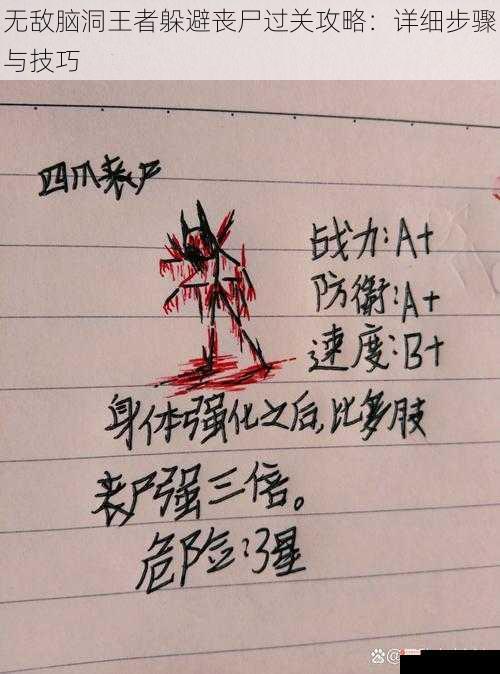 无敌脑洞王者躲避丧尸过关攻略：详细步骤
与技巧
四爪丧尸
战力:A+
防衛:A+
速度:B+
身体强化之后,比多肢
丧尸强三倍。
危险:3星